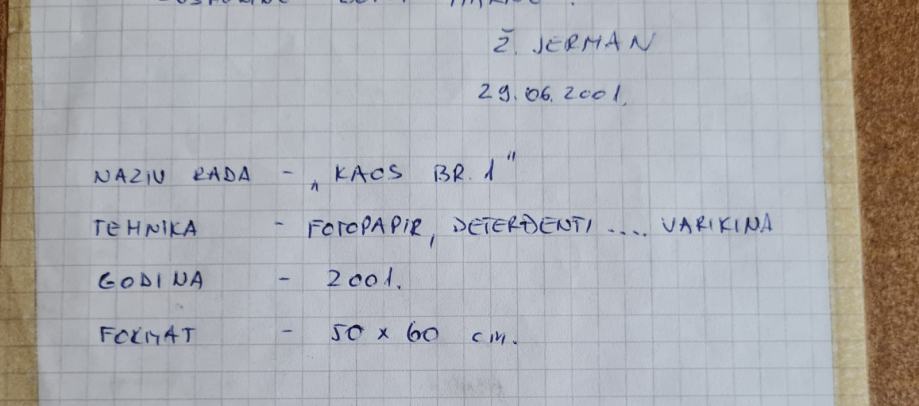 Ž. JERMAN
29.06.2001.
NAZIV RADA - „KAOS BR. 1"
TEHNIKA - FOTOPAPIR, DETERĐENTI .... VARIKINA
GODINA - 2001.
FORMAT - 50 x 60 cm.